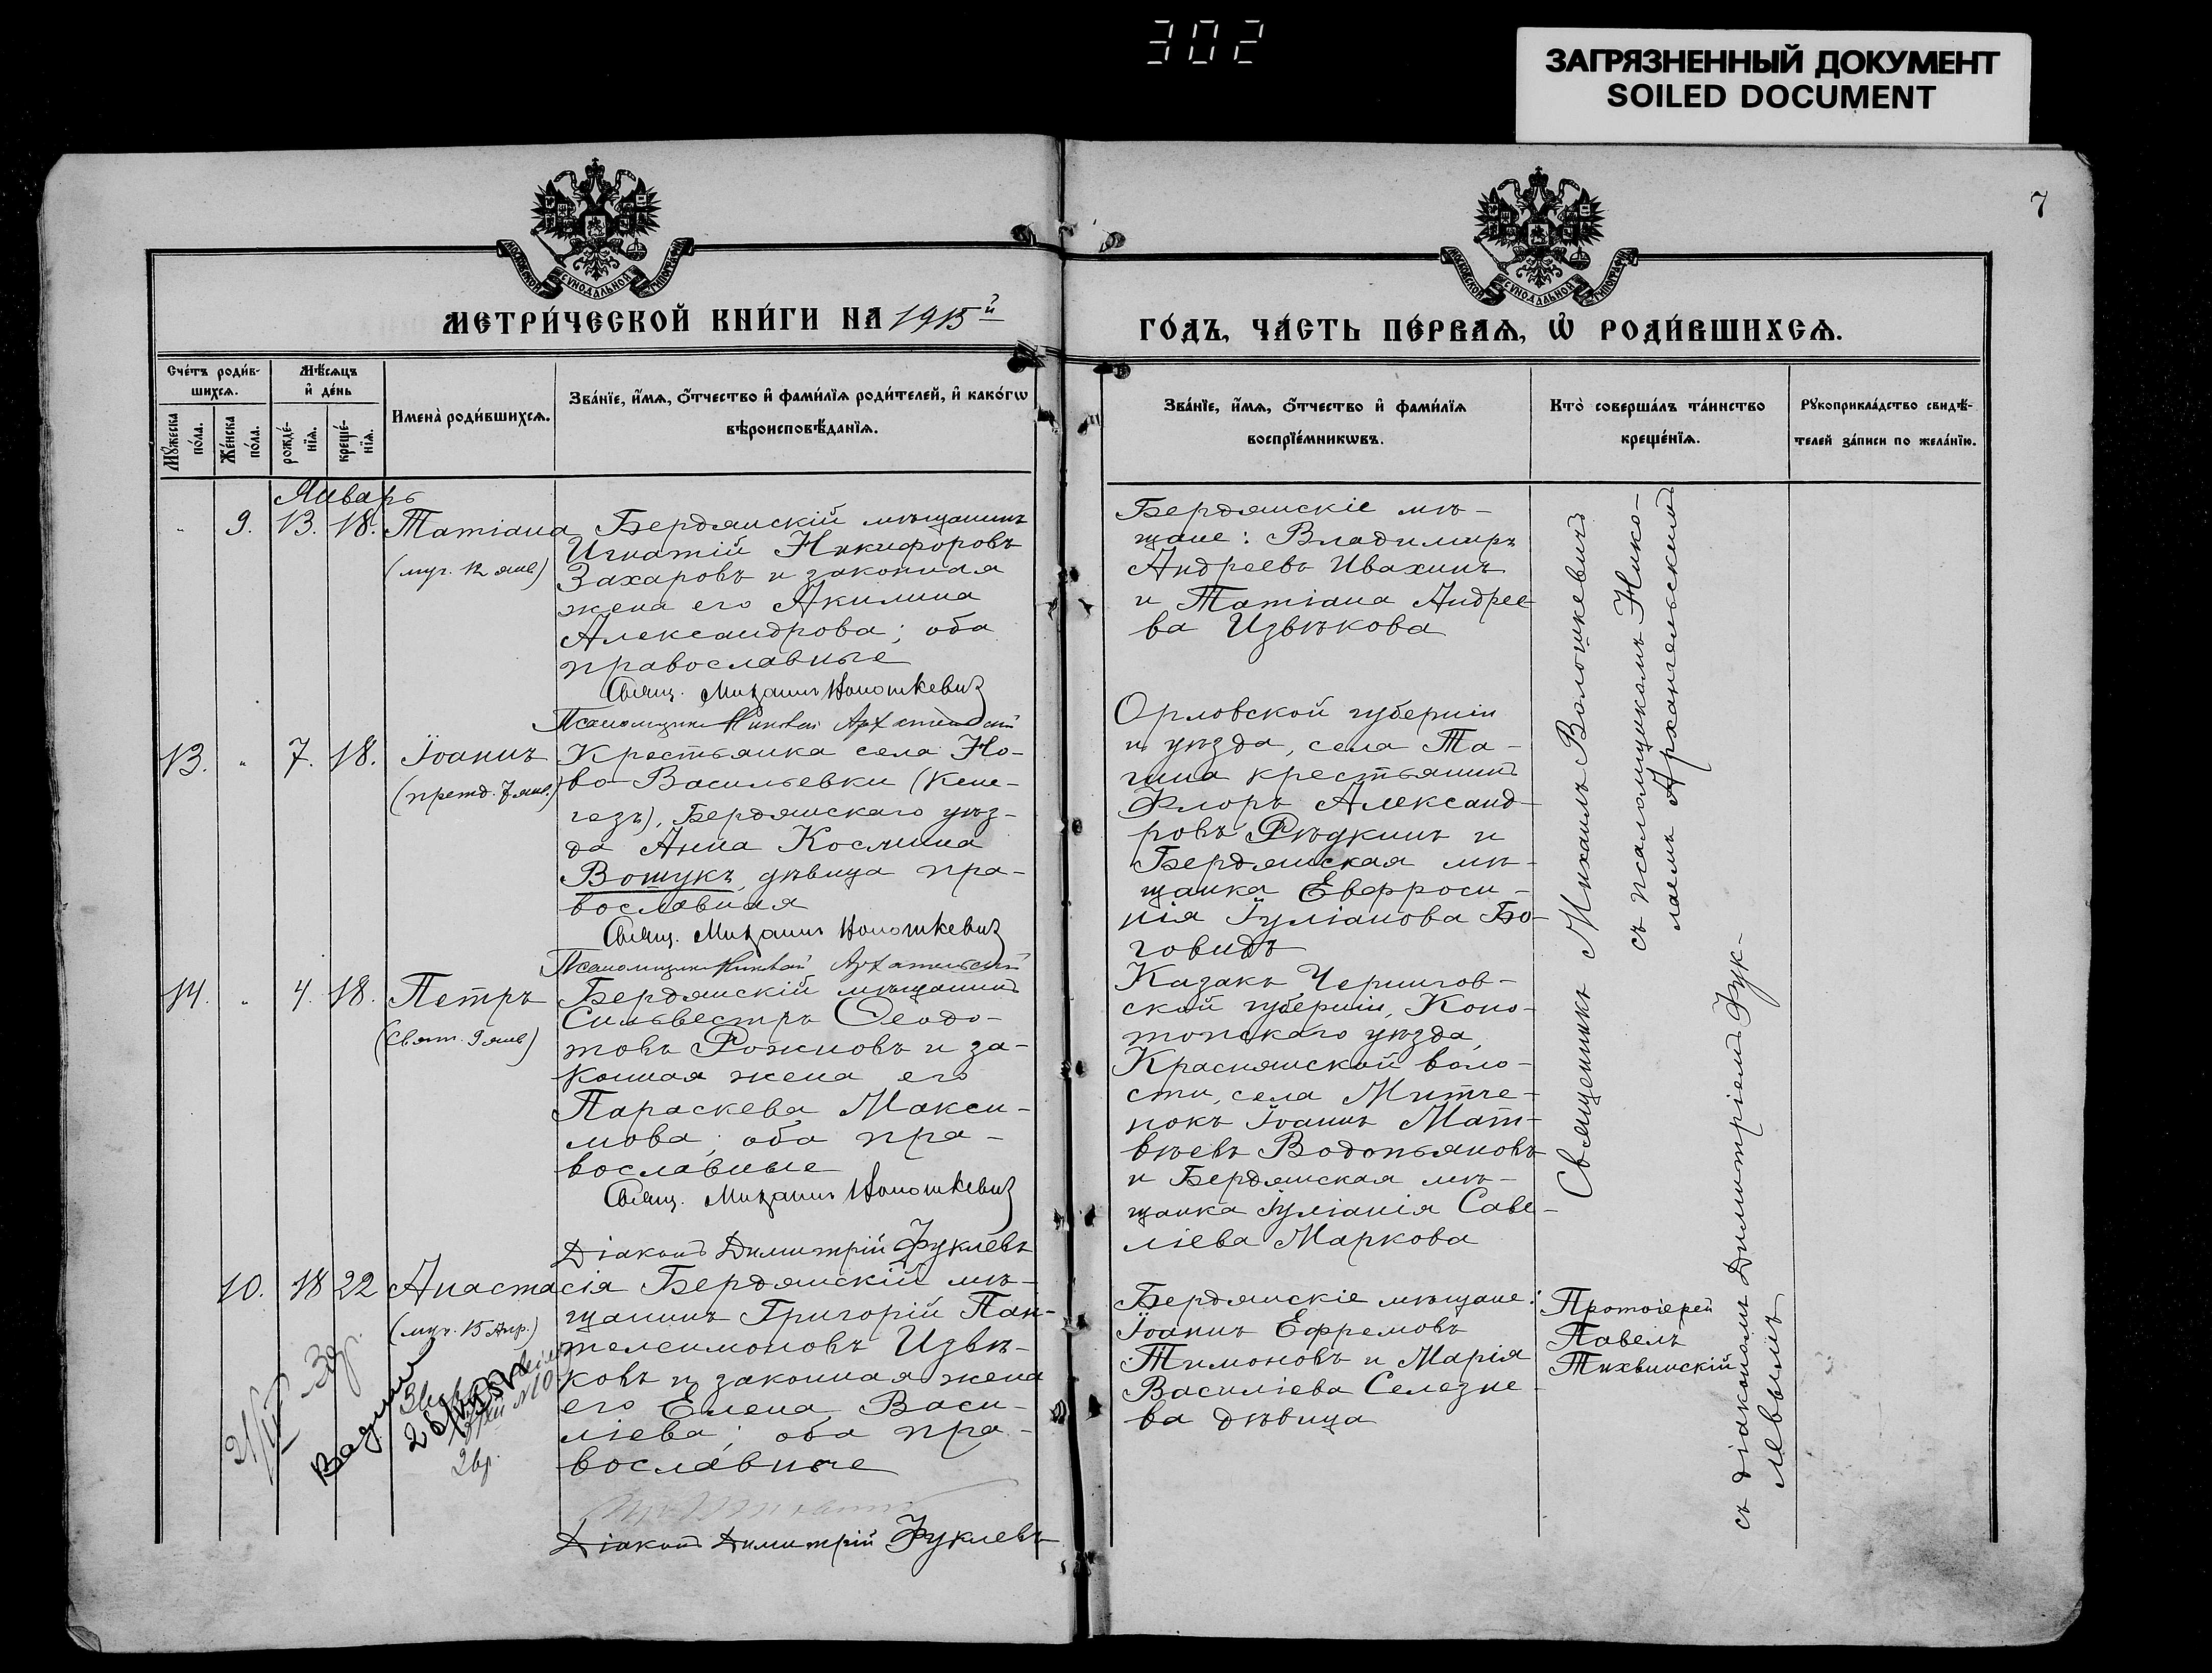 302
ЗАГРЯЗНЕННЫЙ ДОКУМЕНТ
SOILED DOCUMENT
7
МОСКОВСКОЙ СѴНОДАЛЬНОЙ ТИПОГРАФІИ
МОСКОВСКОЙ СѴНОДАЛЬНОЙ ТИПОГРАФІИ
МЕТРИ́ЧЕСКОЙ КНИ́ГИ НА 1915й
ГО́ДЪ, ЧА́СТЬ ПЕ́РВАѦ, Ѡ҆ РОДИ́ВШИХСѦ.
Сче́тъ роди́в-
шихсѧ.
Мꙋ́жеска
по́ла.
Же́нска
по́ла.
Мѣ́сѧцъ
и҆ де́нь
рожде́-
нїѧ.
креще́-
нїѧ.
Имена̀ роди́вшихсѧ.
Зва́нїе, и҆́мѧ, ѻ҆́тчество и҆ фами́лїѧ роди́телей, и҆ како́гѡ
вѣроисповѣ́данїѧ.
Зва́нїе, и҆́мѧ, ѻ҆́тчество и҆ фами́лїѧ
воспрїе́мникѡвъ.
Кто̀ соверша́лъ та́инство
креще́нїѧ.
Рꙋкоприкла́дство свидѣ́-
телей за́писи по жела́нїю.
Январь
9. 13. 18. Татіана
(муч. 12 янв)
Бердянскій мѣщанинъ
Игнатій Никифоровъ
Захаровъ и законная
жена его Акилина
Александрова; оба
православные
Свящ. Михаилъ Волошкевичъ
Псаломщикъ Николай Архангельскій
Бердянскіе мѣ-
щане: Владимиръ
Андреевъ Ивахинъ
и Татіана Андрее-
ва Извѣкова
13. " 7. 18. Іоаннъ
(претд. 7 янв.)
Крестьянка села Но-
во-Васильевки (Кене-
гезъ), Бердянскаго уѣз-
да Анна Космина
Вошукъ, дѣвица пра-
вославная
Свящ. Михаилъ Волошкевичъ
Псаломщикъ Николай Архангельскій
Орловской губерніи
и уѣзда, села Та-
гина крестьянинъ
Флоръ Александ-
ровъ Рѣдкинъ и
Бердянская мѣ-
щанка Евфроси-
нія Іуліанова Бо-
говидъ
14. " 4. 18. Петръ
(Свят. 9 янв)
Бердянскій мѣщанинъ
Сильвестръ Ѳеодо-
товъ Рожновъ и за-
конная жена его
Параскева Макси-
мова; оба пра-
вославные
Свящ. Михаилъ Волошкевичъ
Діаконъ Димитрій Фуклевъ
Казакъ Чернигов-
ской губерніи, Коно-
топскаго уѣзда,
Краснянской воло-
сти, села Митче-
нокъ Іоаннъ Мат-
вѣевъ Водопьяновъ
и Бердянская мѣ-
щанка Іуліанія Саве-
ліева Маркова
10. 18 22 Анастасія
(муч. 15 Апр.)
Бердянскій мѣ-
щанинъ Григорій Пан-
телеимоновъ Извѣ-
ковъ и законная жена
его Елена Васи-
ліева; оба пра-
вославные
Діаконъ Димитрій Фуклевъ
Бердянскіе мѣщане:
Іоаннъ Ефремовъ
Тимоновъ и Марія
Василіева Селезне-
ва дѣвица
Священникъ Михаилъ Волошкевичъ
съ псаломщикомъ Нико-
лаемъ Архангельскимъ
Протоіерей
Павелъ
Тихвинскій
съ діакономъ Димитріемъ Фук-
левымъ